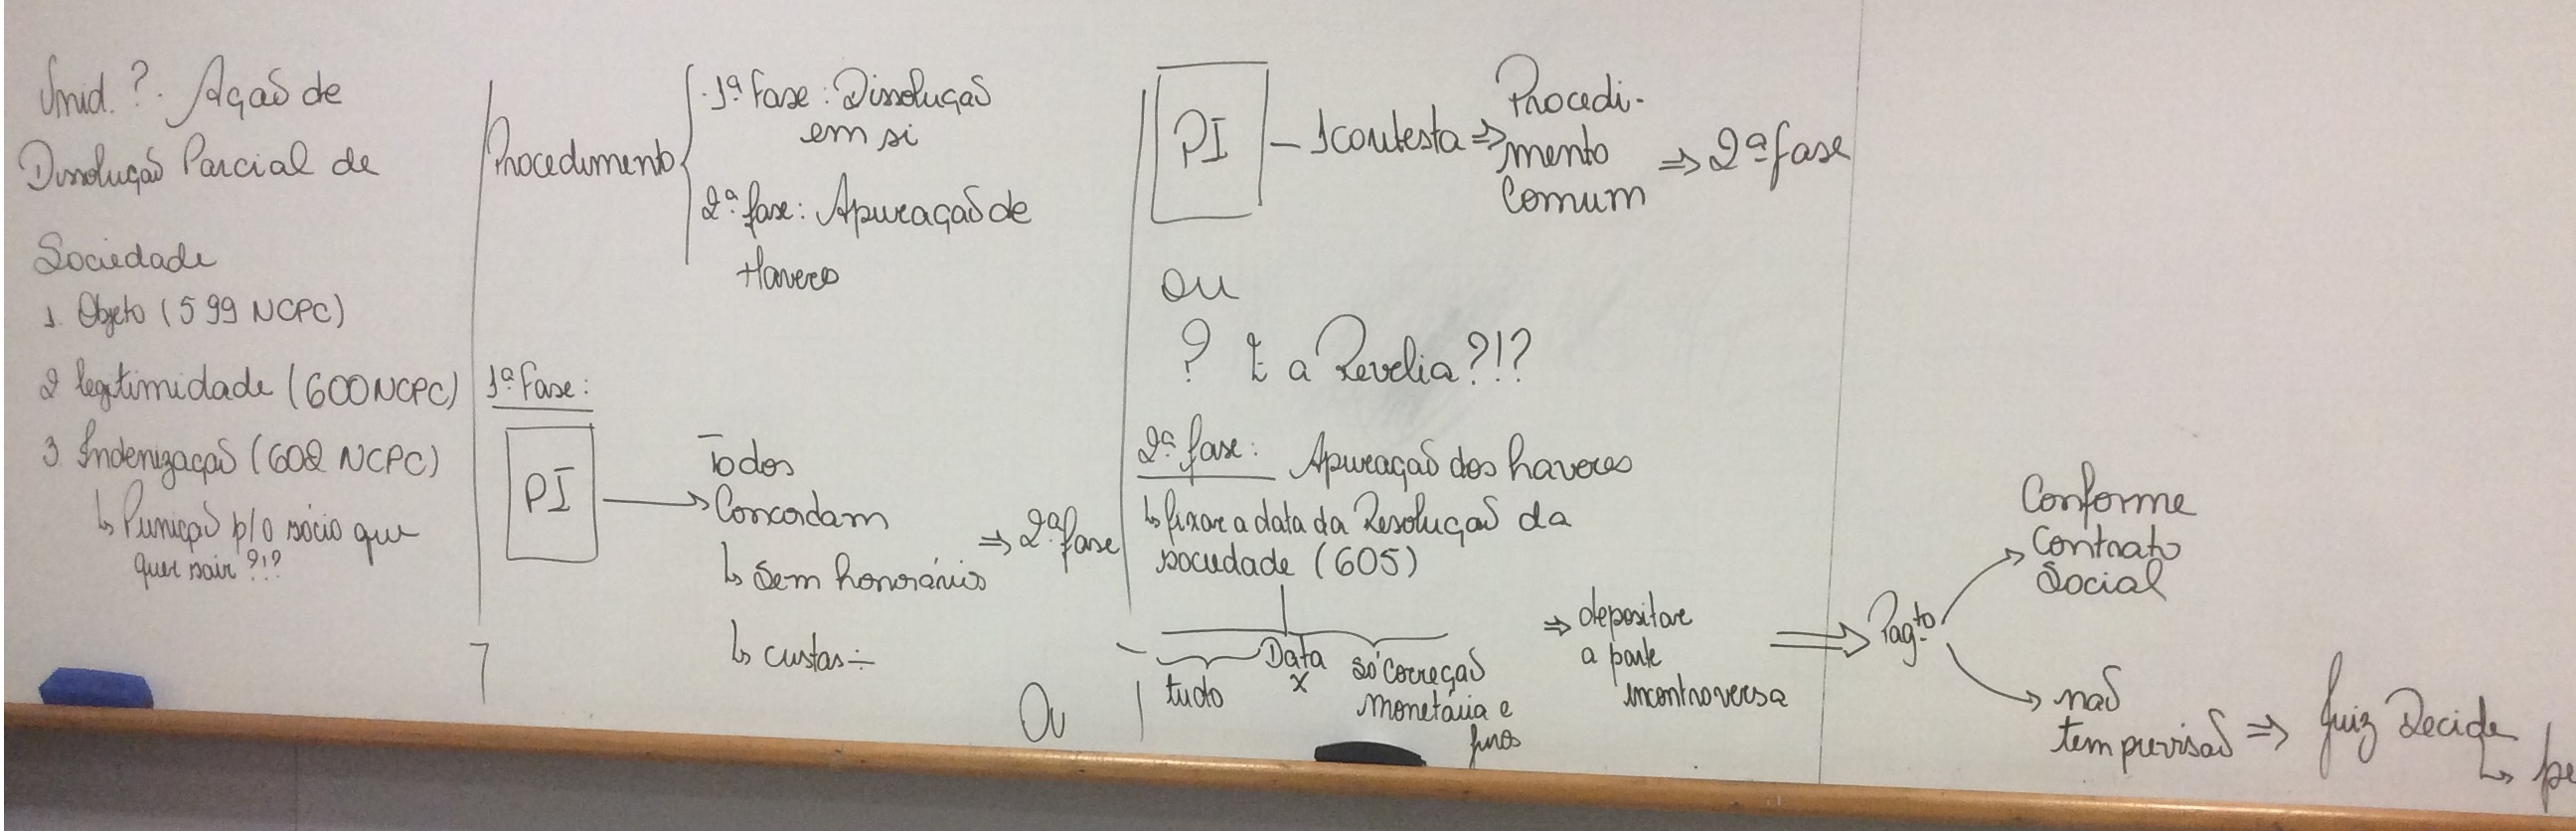 Unid. ? . Ação de
Dissolução Parcial de
Sociedade
1. Objeto (599 NCPC)
2 legitimidade (600 NCPC)
3. Indenização (602 NCPC)
↳ Punição p/ o sócio que
quer sair ?!?
Procedimento
. 1ª Fase : Dissolução
em si
2ª fase : Apuração de
Haveres
1ª Fase :
PI
Todos
Concordam
↳ Sem honorários
↳ custas ÷
⇒ 2ª fase
Ou
PI - 1 contesta ⇒
Procedi-
mento
Comum
⇒ 2ª fase
ou
? E a Revelia ?!?
2ª fase : Apuração dos haveres
↳ fixar a data da Resolução da
sociedade (605)
tudo
Data
x
só correção
monetária e
juros
⇒ depositar
a parte
incontroversa
⇒ Pagto
Conforme
Contrato
Social
não
tem previsão ⇒ Juiz Decide